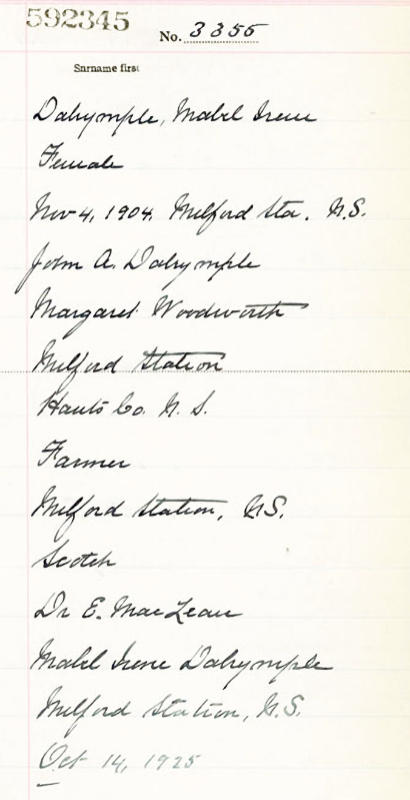 592345
No. 3355
Surname first
Dalrymple, Mabel Irene
Female
Nov 4, 1904. Milford Sta. N.S.
John A. Dalrymple
Margaret Woodworth
Milford Station
Hants Co. N.S.
Farmer
Milford Station, N.S.
Scotch
Dr E. MacLean
Mabel Irene Dalrymple
Milford Station, N.S.
Oct 14, 1925